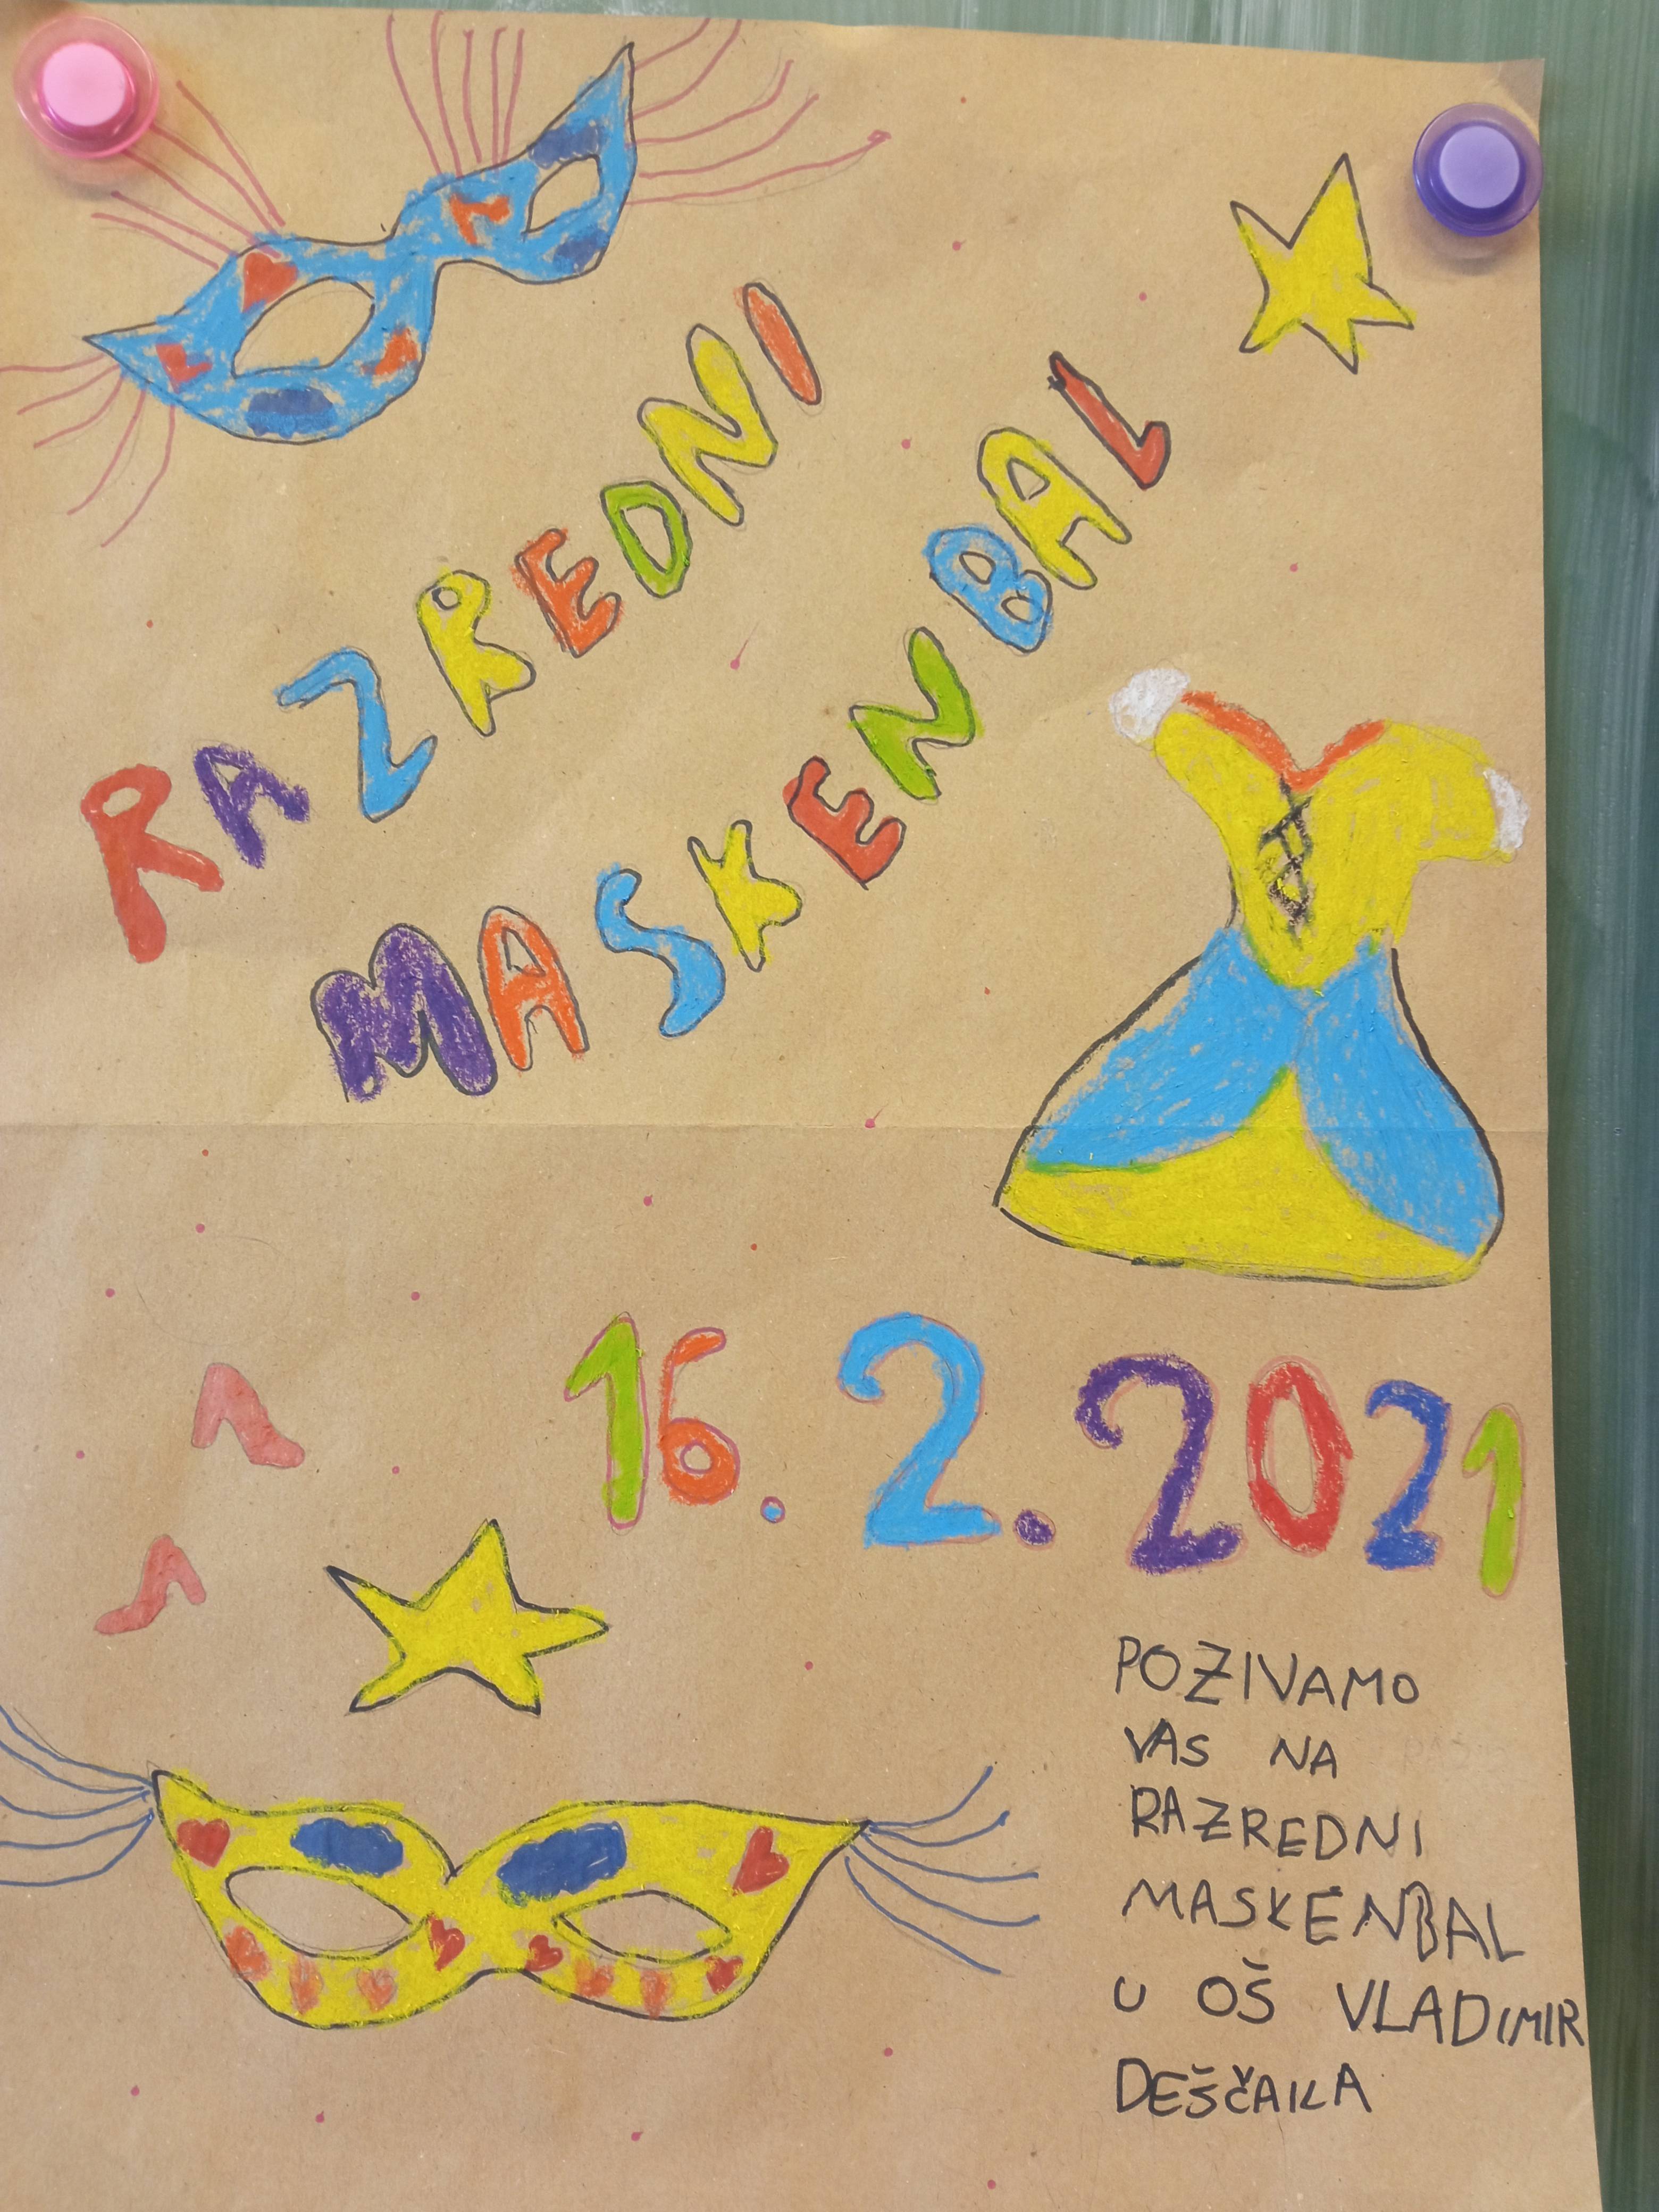 RAZREDNI
MASKENBAL
16. 2. 2021
POZIVAMO
VAS NA
RAZREDNI
MASKENBAL
U OŠ VLADIMIR
DEŠČAKA